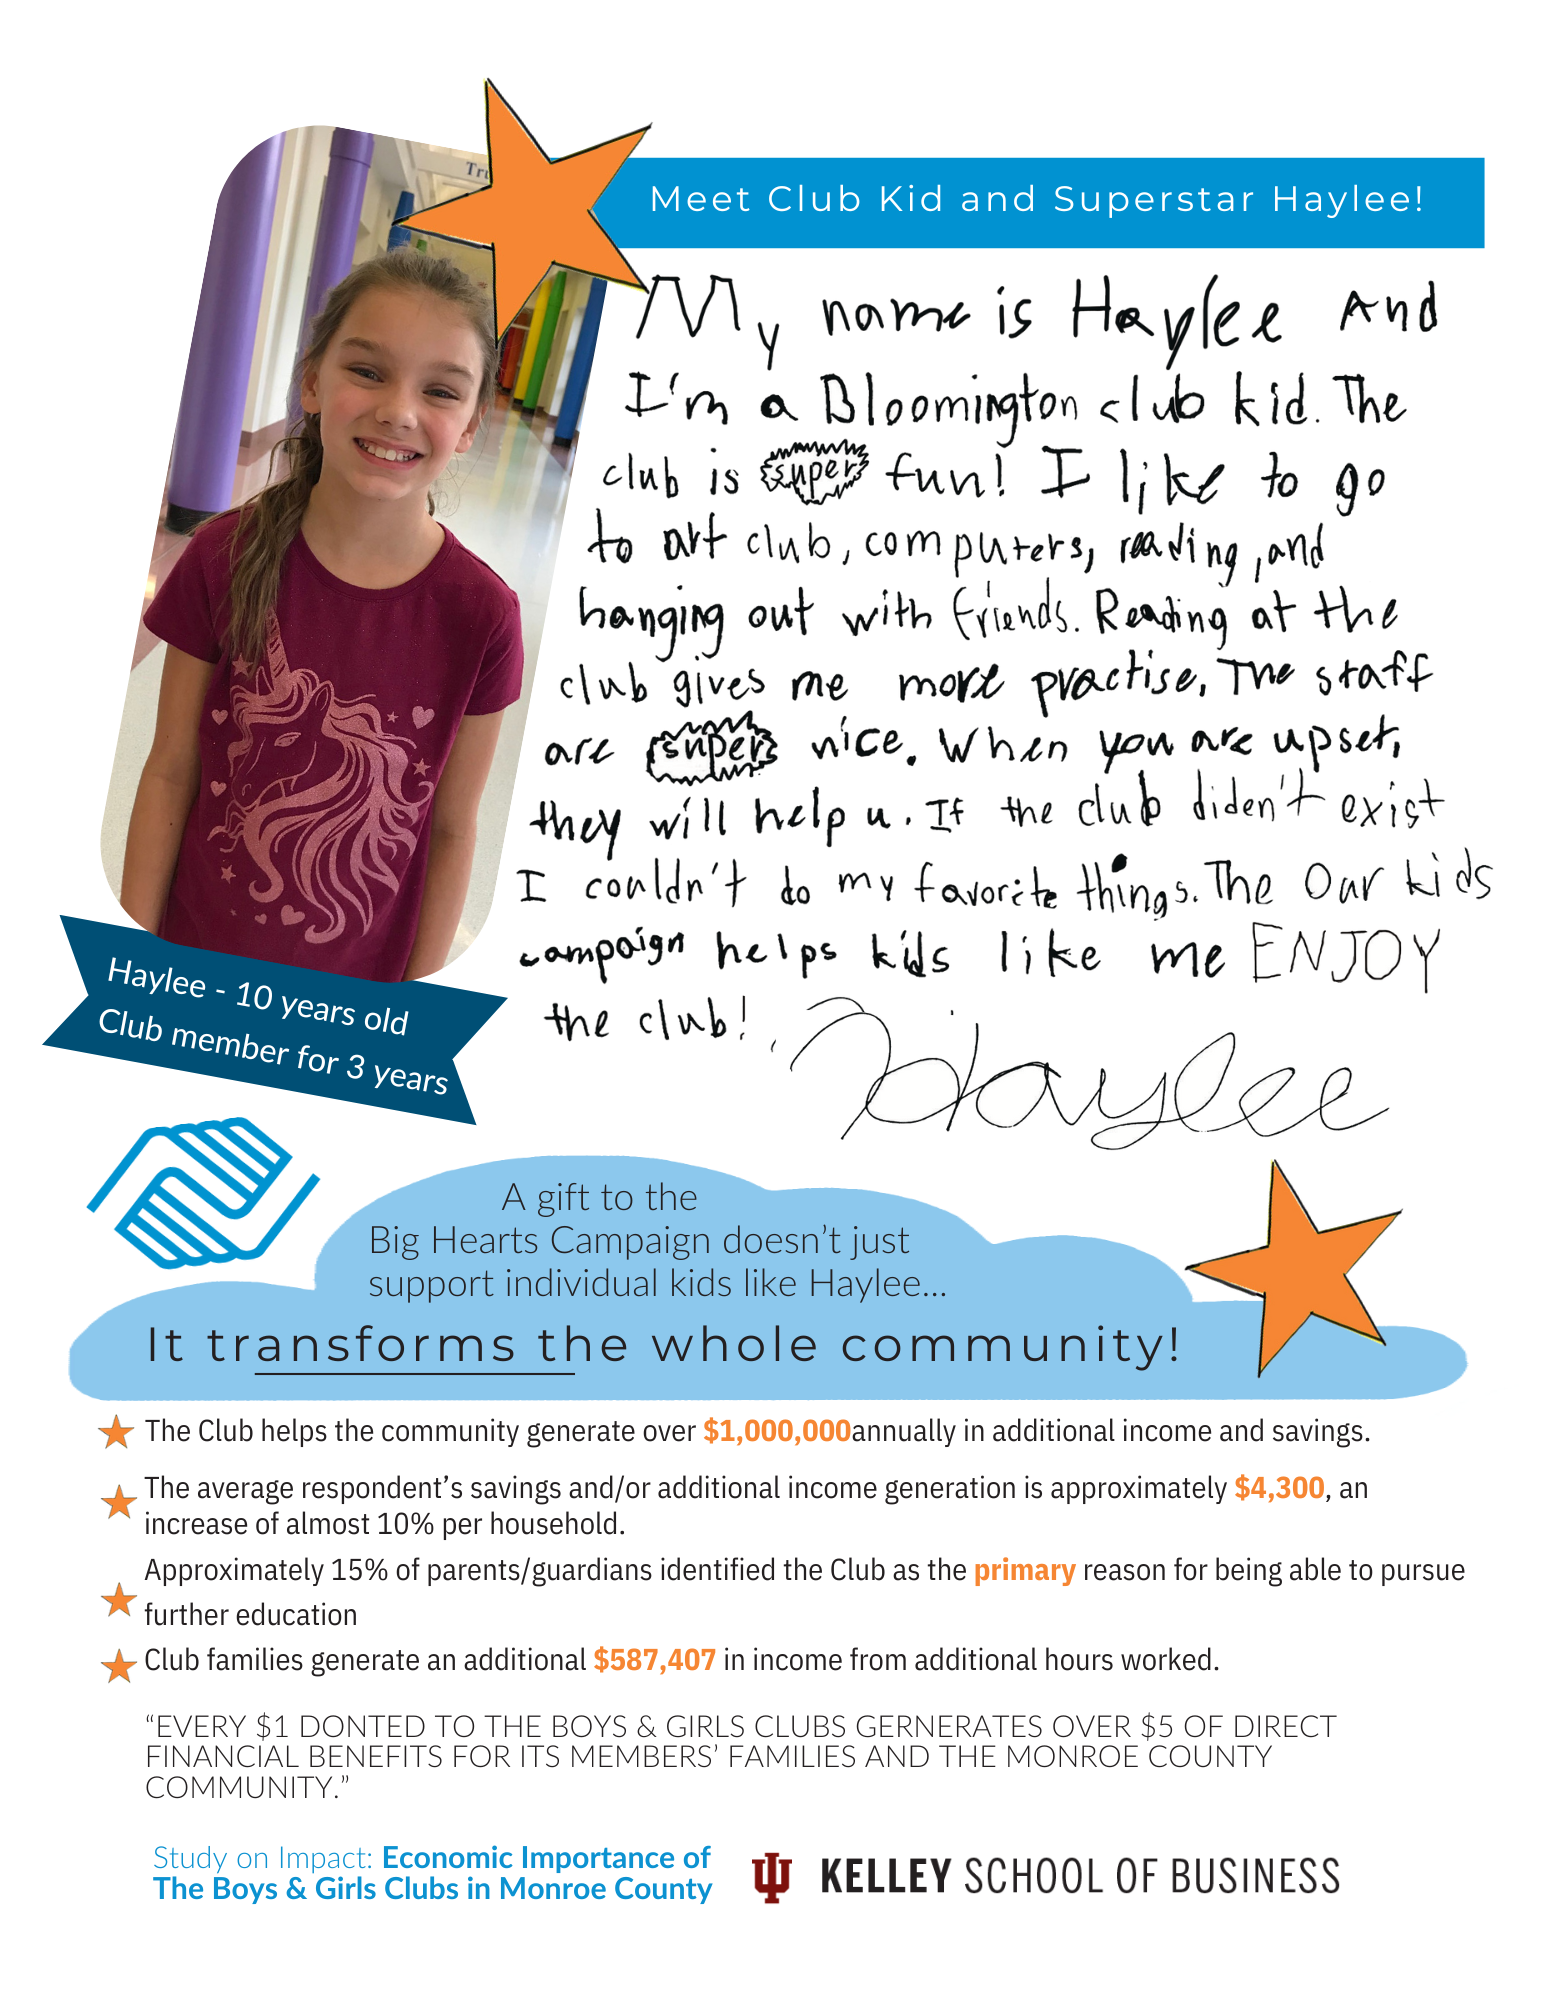 Tru
Meet Club Kid and Superstar Haylee!
My name is Haylee And
I'm a Bloomington club kid. The
club is super fun! I like to go
to art club, computers, reading, and
hanging out with friends. Reading at the
club gives me more practise. The staff
are super nice. When you are upset,
they will help u. If the club diden't exist
I couldn't do my favorite things. The Our kids
campaign helps kids like me ENJOY
the club!
Haylee
Haylee - 10 years old
Club member for 3 years
A gift to the
Big Hearts Campaign doesn't just
support individual kids like Haylee...
It transforms the whole community!
The Club helps the community generate over $1,000,000annually in additional income and savings.
The average respondent's savings and/or additional income generation is approximately $4,300, an
increase of almost 10% per household.
Approximately 15% of parents/guardians identified the Club as the primary reason for being able to pursue
further education
Club families generate an additional $587,407 in income from additional hours worked.
“EVERY $1 DONTED TO THE BOYS & GIRLS CLUBS GERNERATES OVER $5 OF DIRECT
FINANCIAL BENEFITS FOR ITS MEMBERS’ FAMILIES AND THE MONROE COUNTY
COMMUNITY.”
Study on Impact: Economic Importance of
The Boys & Girls Clubs in Monroe County
KELLEY SCHOOL OF BUSINESS